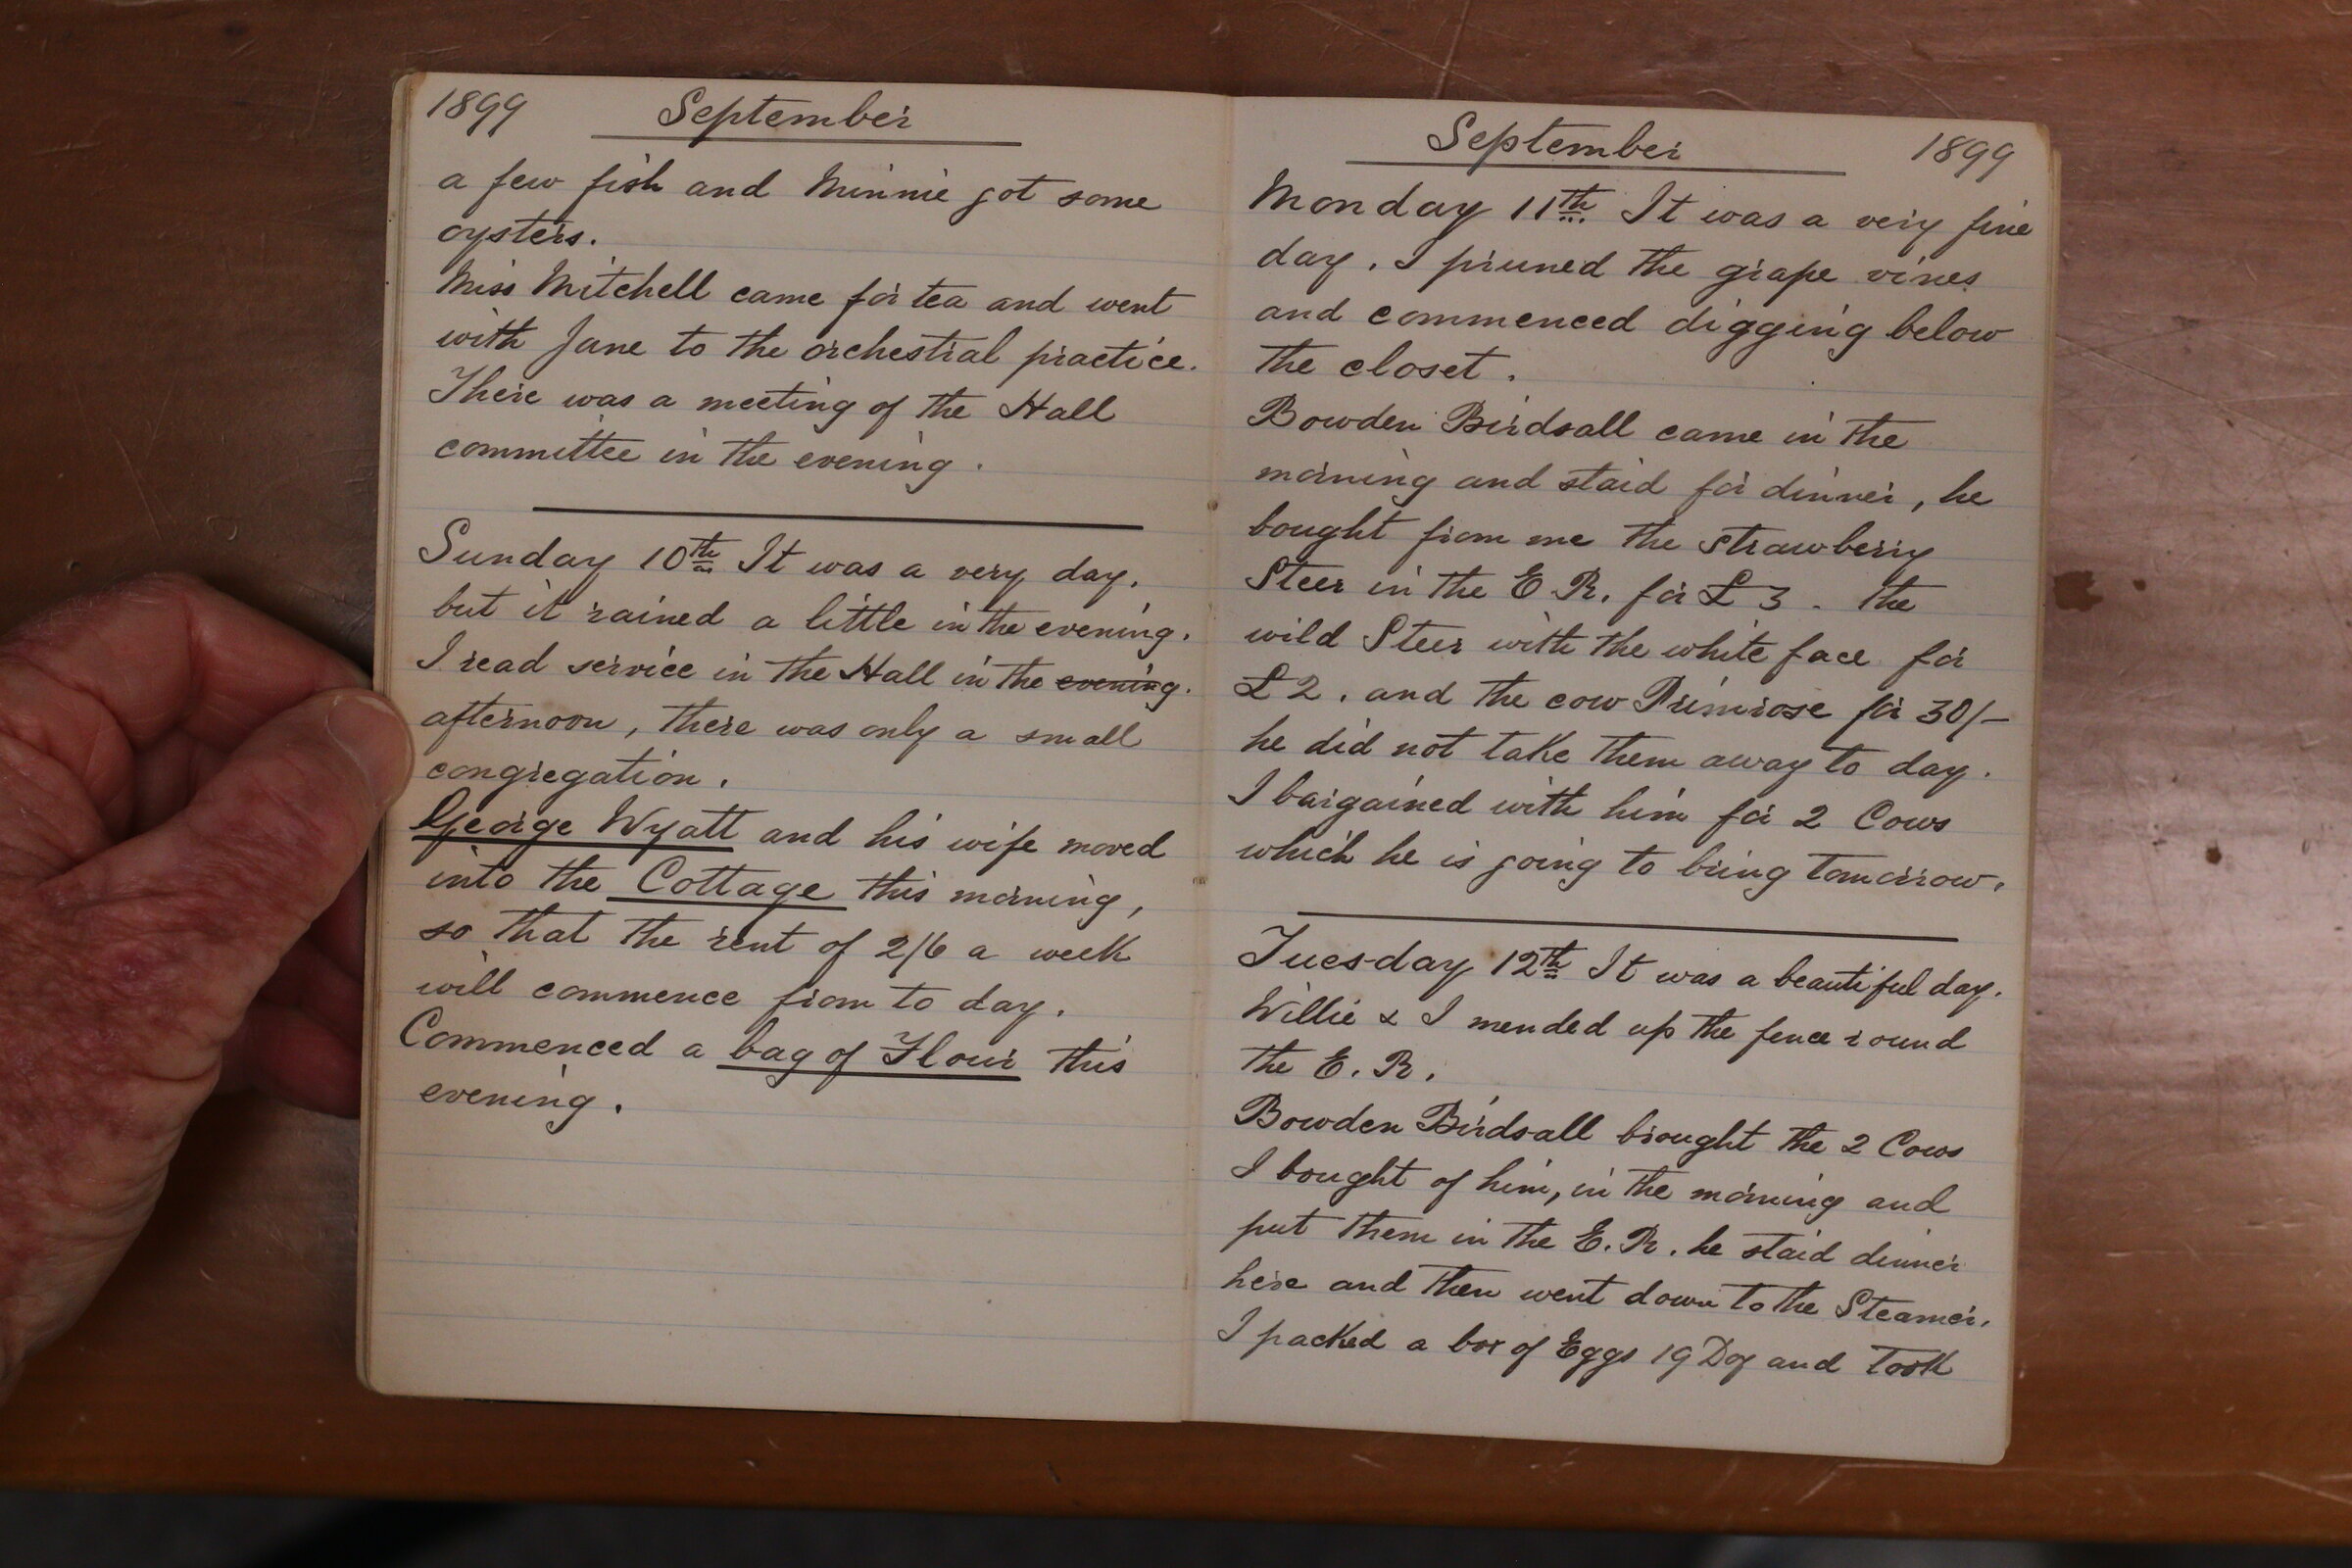 1899 September
a few fish and Minnie got some
oysters.
Miss Mitchell came for tea and went
with Jane to the orchestral practice.
There was a meeting of the Hall
committee in the evening.
Sunday 10th It was a very day.
but it rained a little in the evening.
I read service in the Hall in the evening.
afternoon, there was only a small
congregation.
George Wyatt and his wife moved
into the Cottage this morning,
so that the rent of 2/6 a week
will commence from to day.
Commenced a bag of Flour this
evening.
September 1899
Monday 11th. It was a very fine
day. I pruned the grape vines
and commenced digging below
the closet.
Bowden Birdsall came in the
morning and staid for dinner, he
bought from me the strawberry
Steer in the E R. for £3. the
wild Steer with the white face for
£2. and the cow Primrose for 30/-
he did not take them away to day.
I bargained with him for 2 Cows
which he is going to bring tomorrow.
Tuesday 12th It was a beautiful day.
Willie & I mended up the fence round
the E. R.
Bowden Birdsall brought the 2 Cows
I bought of him, in the morning and
put them in the E. R. he staid dinner
here and then went down to the Steamer.
I packed a box of Eggs 19 Doz and took